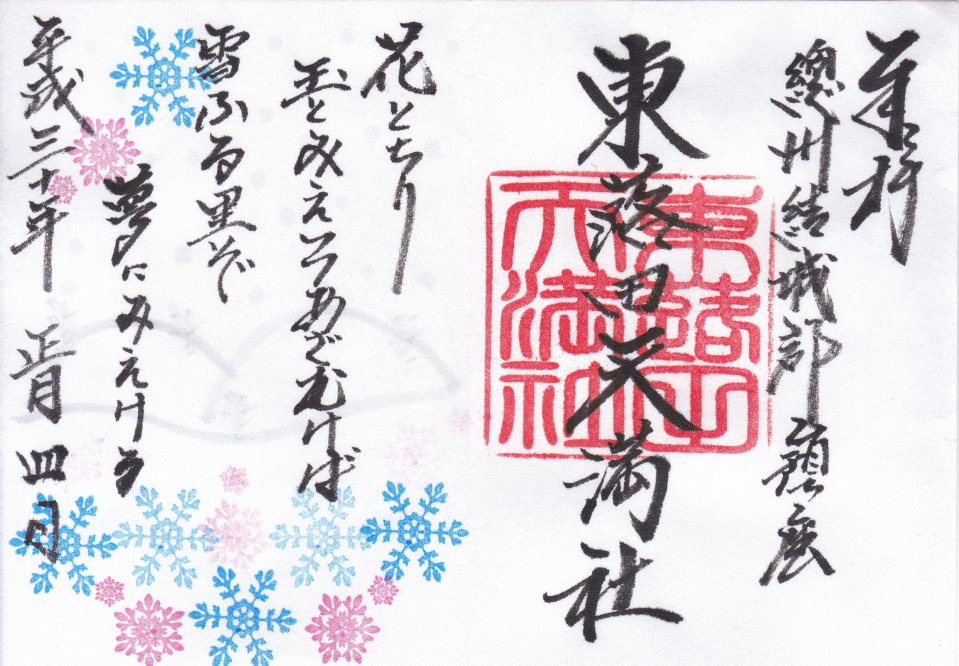 奉拝
總州結城郡鎮座
東蕗田天満社
東蕗田天満社
花とちり
玉とみえつゝあざむけば
雪ふる里ぞ
夢にみえける
平成三十年 正月 四日